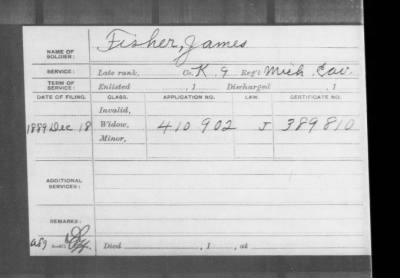 NAME OF SOLDIER: Fisher, James
SERVICE: Late rank, Co. K, 9 Reg't Mich. Cav.
TERM OF SERVICE: Enlisted , 1 Discharged , 1
DATE OF FILING. CLASS. APPLICATION NO. LAW. CERTIFICATE NO.
Invalid,
1889 Dec 18 Widow, 410 902 J 389810
Minor,
ADDITIONAL SERVICES:
REMARKS:
Died , 1 , at